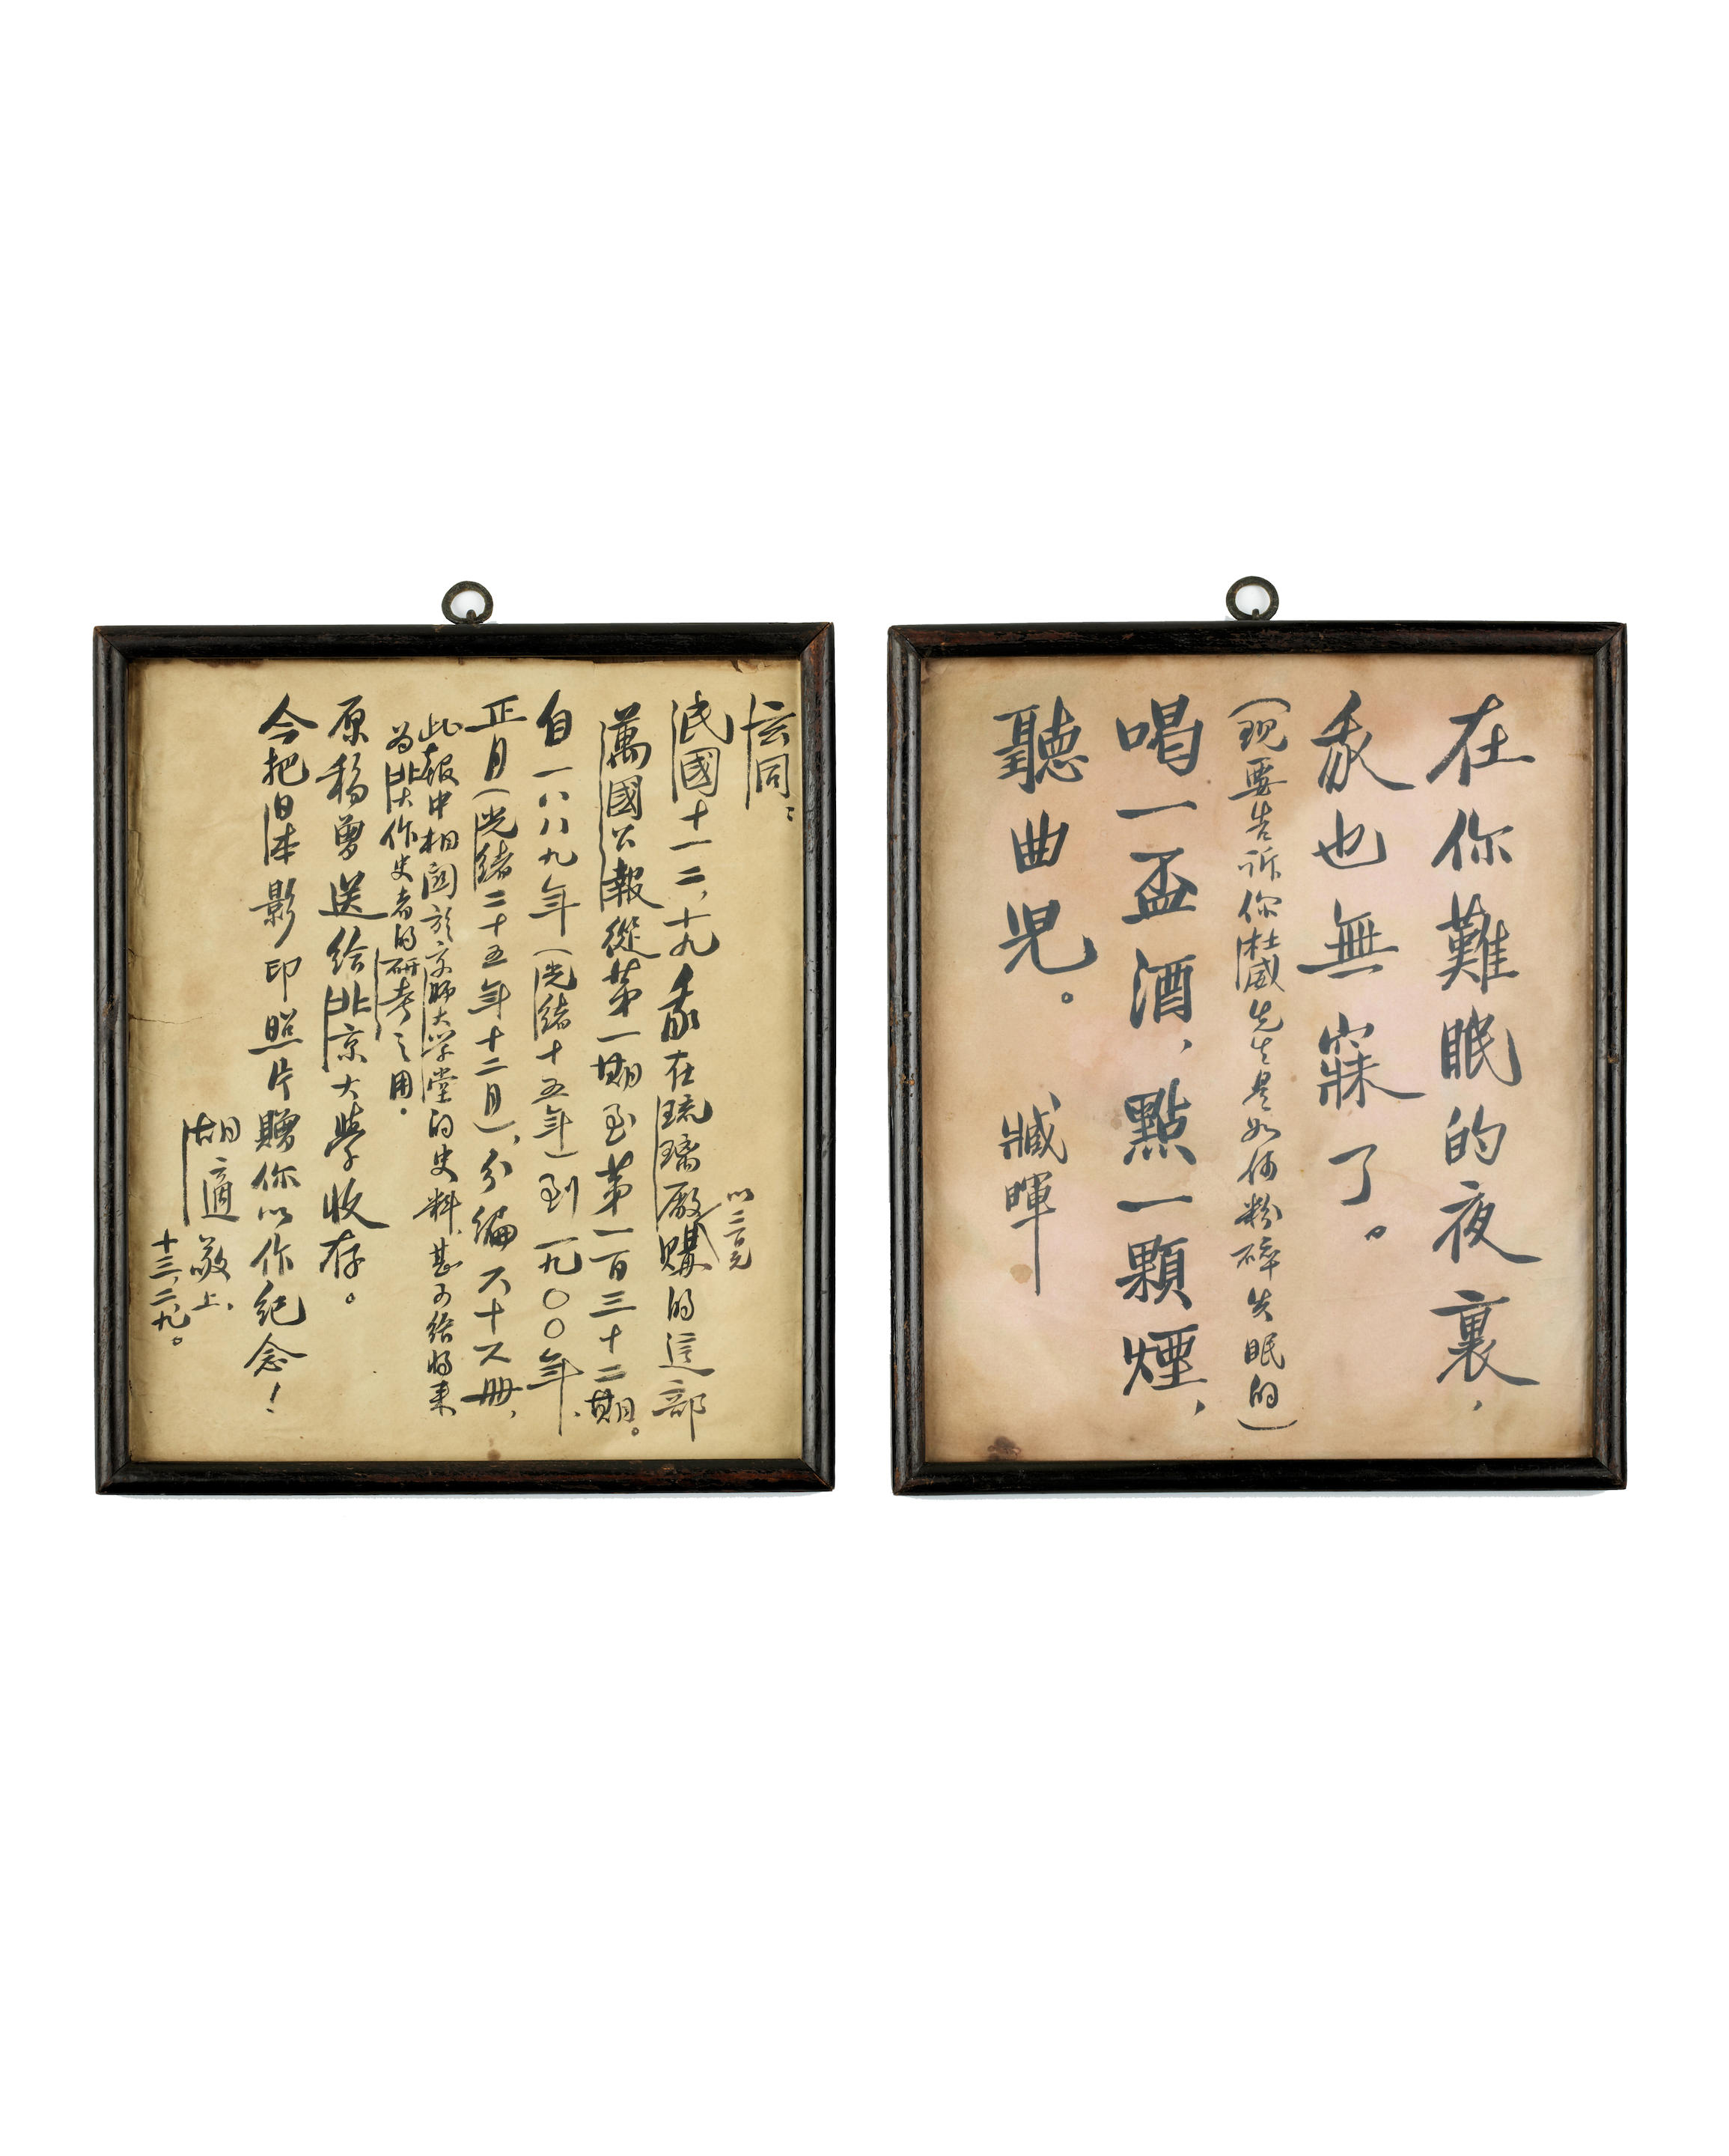 在你難眠的夜裏,
我也無寐了。
(現要告訴你杜威先生是如何粉碎失眠的)
喝一盃酒,點一顆煙,
聽曲兒。 臧暉
玄同:
民國十一二,十九我在琉璃厰購的這部
以二元
萬國公報從第一期至第一百三十二期。
自一八八九年(光緒十五年)到一九〇〇年、
正月(光緒二十五年十二月),分編六十六册,
此報中相関於京師大学堂的史料,甚可給将来
為北大作史者的研考之用.
原稿曾送給北京大學收存。
今把旧本影印照片贈你以作紀念!
胡適敬上.
十三,二,九。